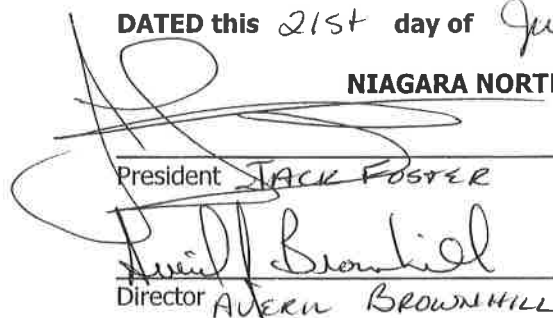 DATED this 21st day of Ju
NIAGARA NORT
President JACK FOSTER
Brownhill
Director AVERIL BROWNHILL